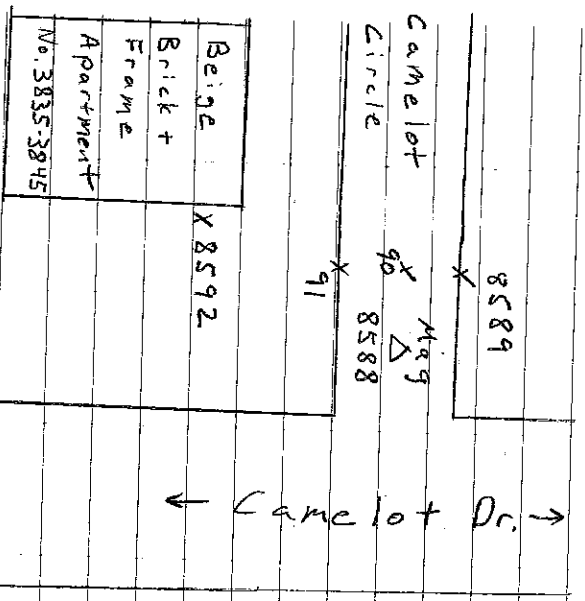 Camelot
Circle
8589
X
X Mag
90 △
8588
X
91
Beige
Brick +
Frame
Apartment
No. 3835-3845
X 8592
← Camelot Dr. →